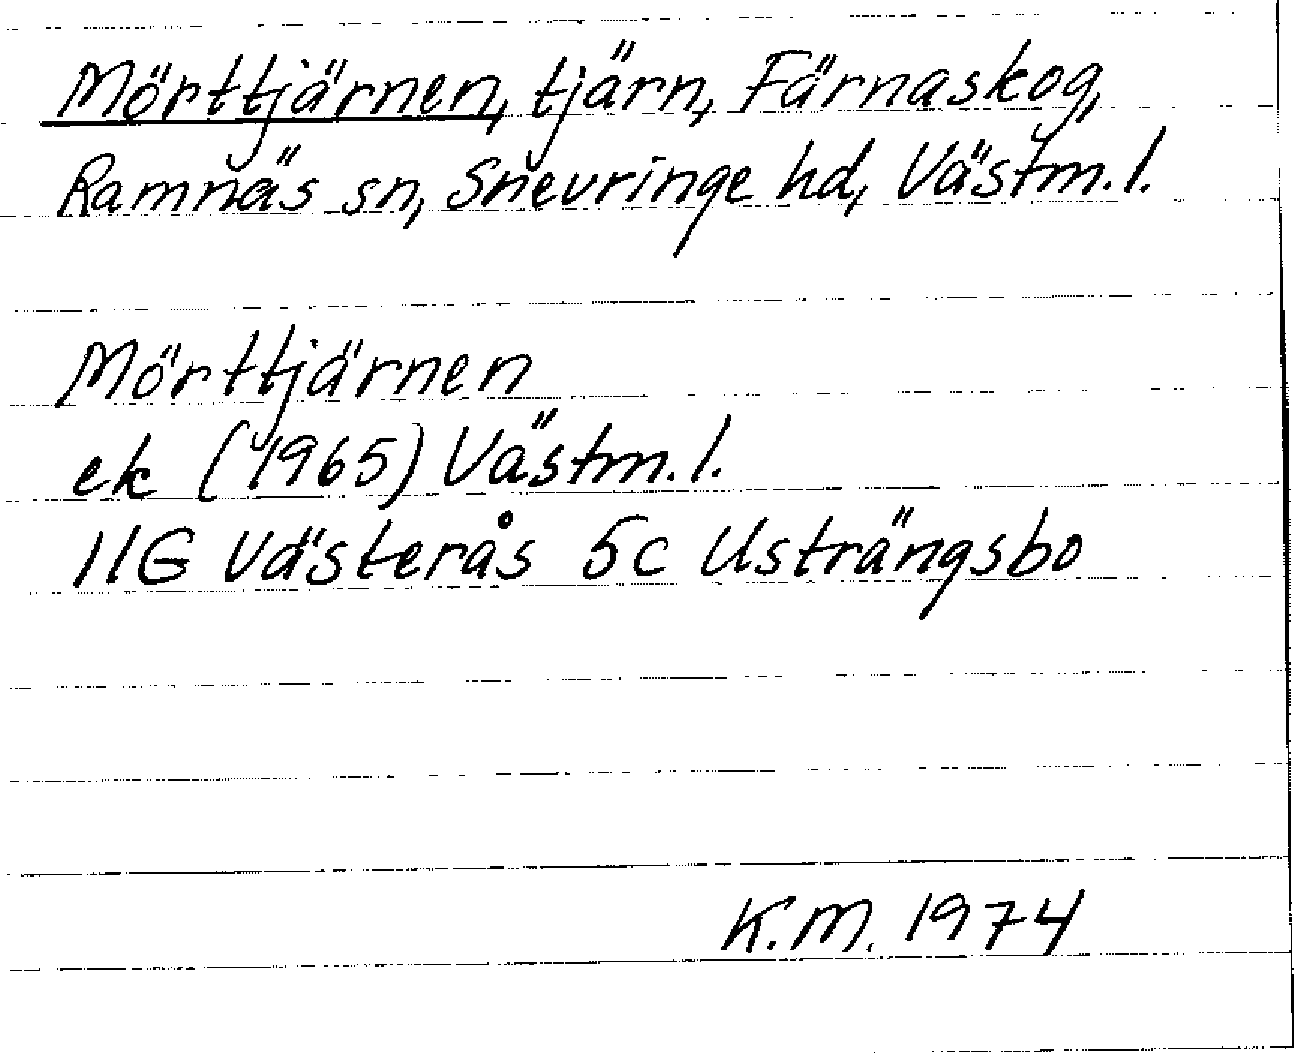 Mörttjärnen, tjärn, Färnaskog,
Ramnäs sn, Snevringe hd, Västm.l.
Mörttjärnen
ek (1965) Västm.l.
11G Västerås 5c Usträngsbo
K.M. 1974